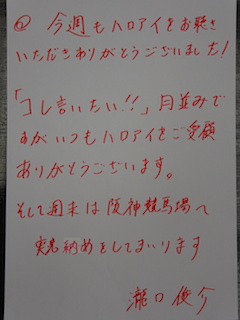 ② 今週もハロアイをお聴き
いただきありがとうございました!
「コレ言いたい!!」月並みで
すがいつもハロアイをご愛顧
ありがとうございます。
そして週末は阪神競馬場へ
実況納めをしてまいります
瀧口俊介